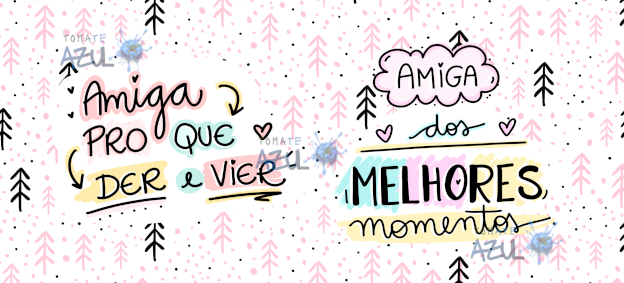 TOMATE
AZUL
Amiga
PRO QUE
DER e VIER
TOMATE
AZUL
AMIGA
dos
MELHORES
momentos
TOMATE
AZUL